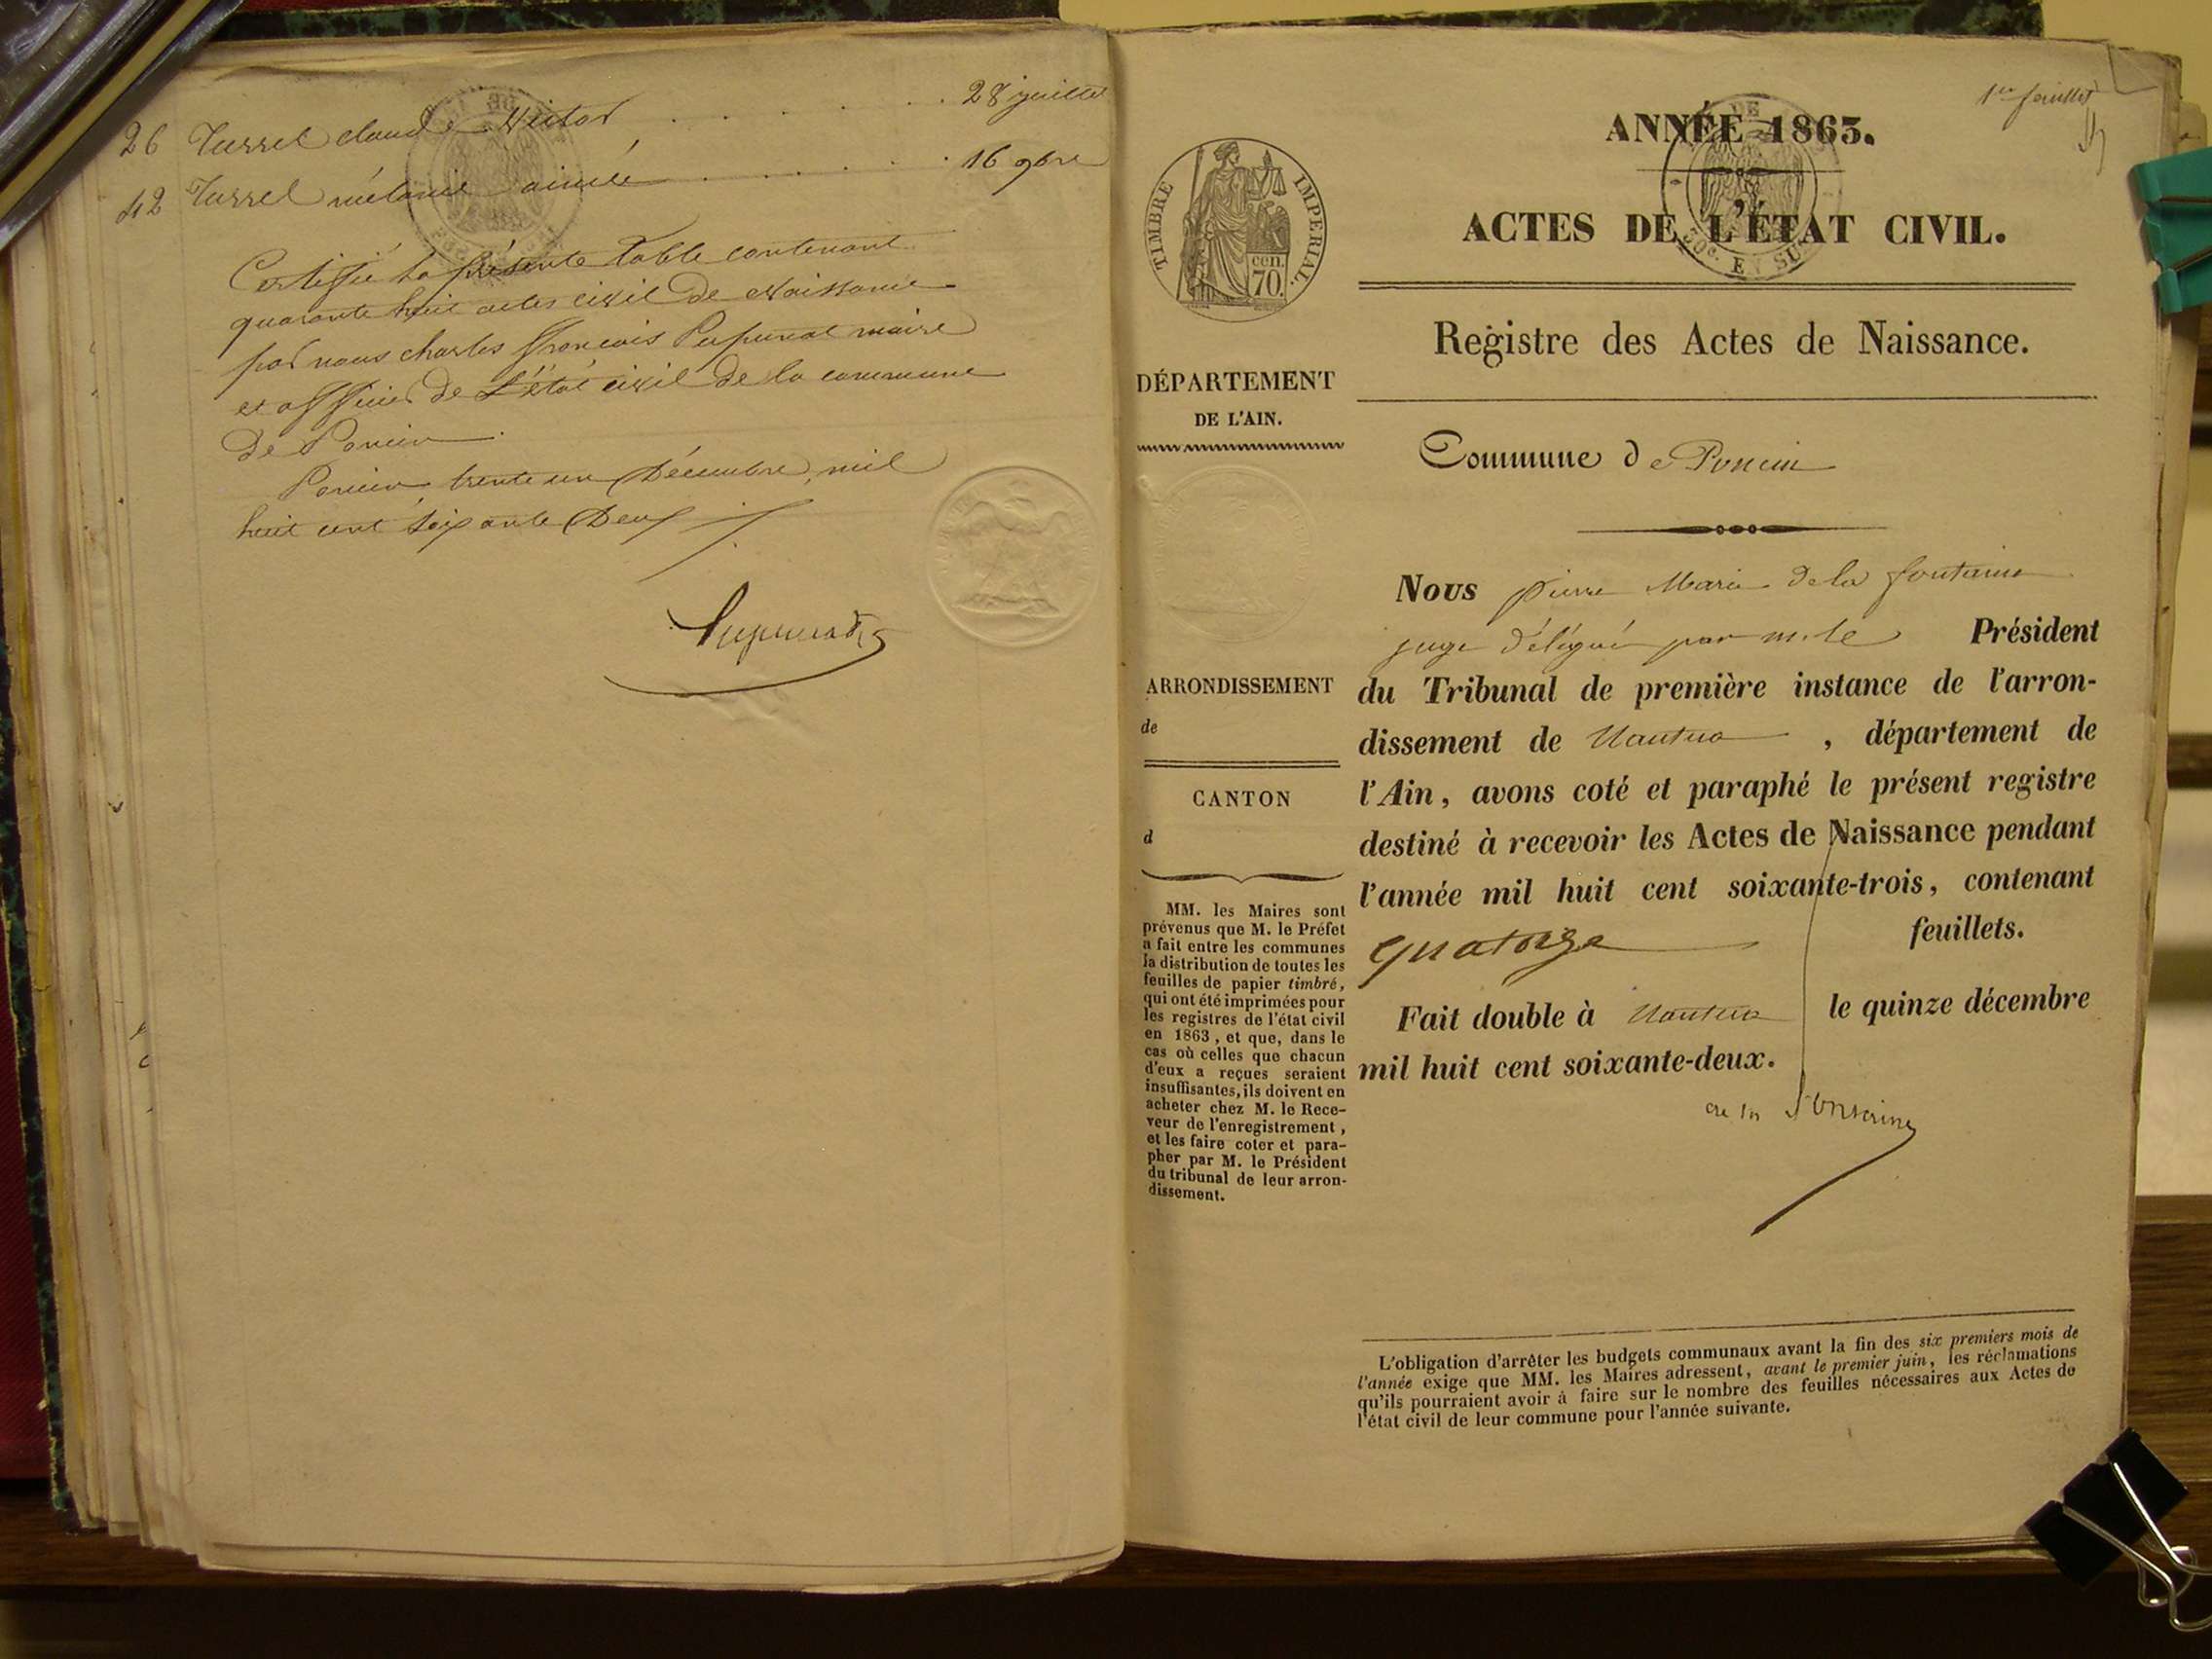 26 Tussel claude Victor . . . . . . 28 juillet
42 Tussel mélanie aimée . . . . . . 16 9bre
Certifié la présente table contenant
quarante huit actes civil de Naissance
par nous charles François Pupunat maire
et officier de L'état civil de la commune
de Poncin
Poncin, trente un Décembre, mil
huit cent soixante Deux
Pupunat
1er feuillet
ANNÉE 1863.
ACTES DE L'ÉTAT CIVIL.
TIMBRE IMPERIAL.
cen.
70.
Registre des Actes de Naissance.
DÉPARTEMENT
DE L'AIN.
Commune de Poncin
Nous pierre Marie de la fontaine
juge délégué par m. le Président
du Tribunal de première instance de l'arron-
dissement de Nantua , département de
l'Ain, avons coté et paraphé le présent registre
destiné à recevoir les Actes de Naissance pendant
l'année mil huit cent soixante-trois, contenant
quatorze feuillets.
Fait double à Nantua le quinze décembre
mil huit cent soixante-deux.
ARRONDISSEMENT
de
CANTON
d
MM. les Maires sont
prévenus que M. le Préfet
a fait entre les communes
la distribution de toutes les
feuilles de papier timbré,
qui ont été imprimées pour
les registres de l'état civil
en 1863, et que, dans le
cas où celles que chacun
d'eux a reçues seraient
insuffisantes, ils doivent en
acheter chez M. le Rece-
veur de l'enregistrement,
et les faire coter et para-
pher par M. le Président
du tribunal de leur arron-
dissement.
L'obligation d'arrêter les budgets communaux avant la fin des six premiers mois de
l'année exige que MM. les Maires adressent, avant le premier juin, les réclamations
qu'ils pourraient avoir à faire sur le nombre des feuilles nécessaires aux Actes de
l'état civil de leur commune pour l'année suivante.